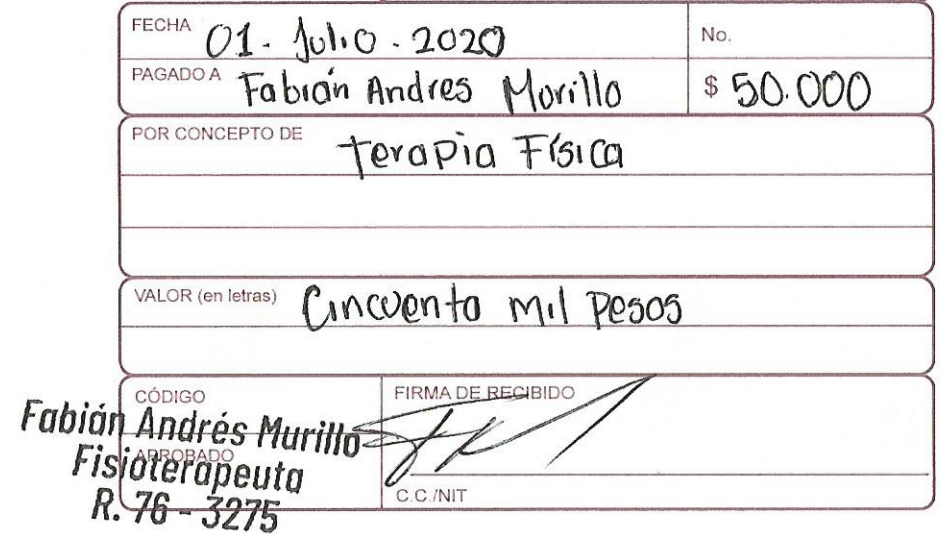 FECHA 01. Julio. 2020 No.
PAGADO A Fabián Andres Murillo $ 50.000
POR CONCEPTO DE Terapia Física
VALOR (en letras) Cincuenta mil pesos
CÓDIGO FIRMA DE RECIBIDO
Fabián Andrés Murillo
APROBADO
Fisioterapeuta
C.C./NIT
R. 76 - 3275